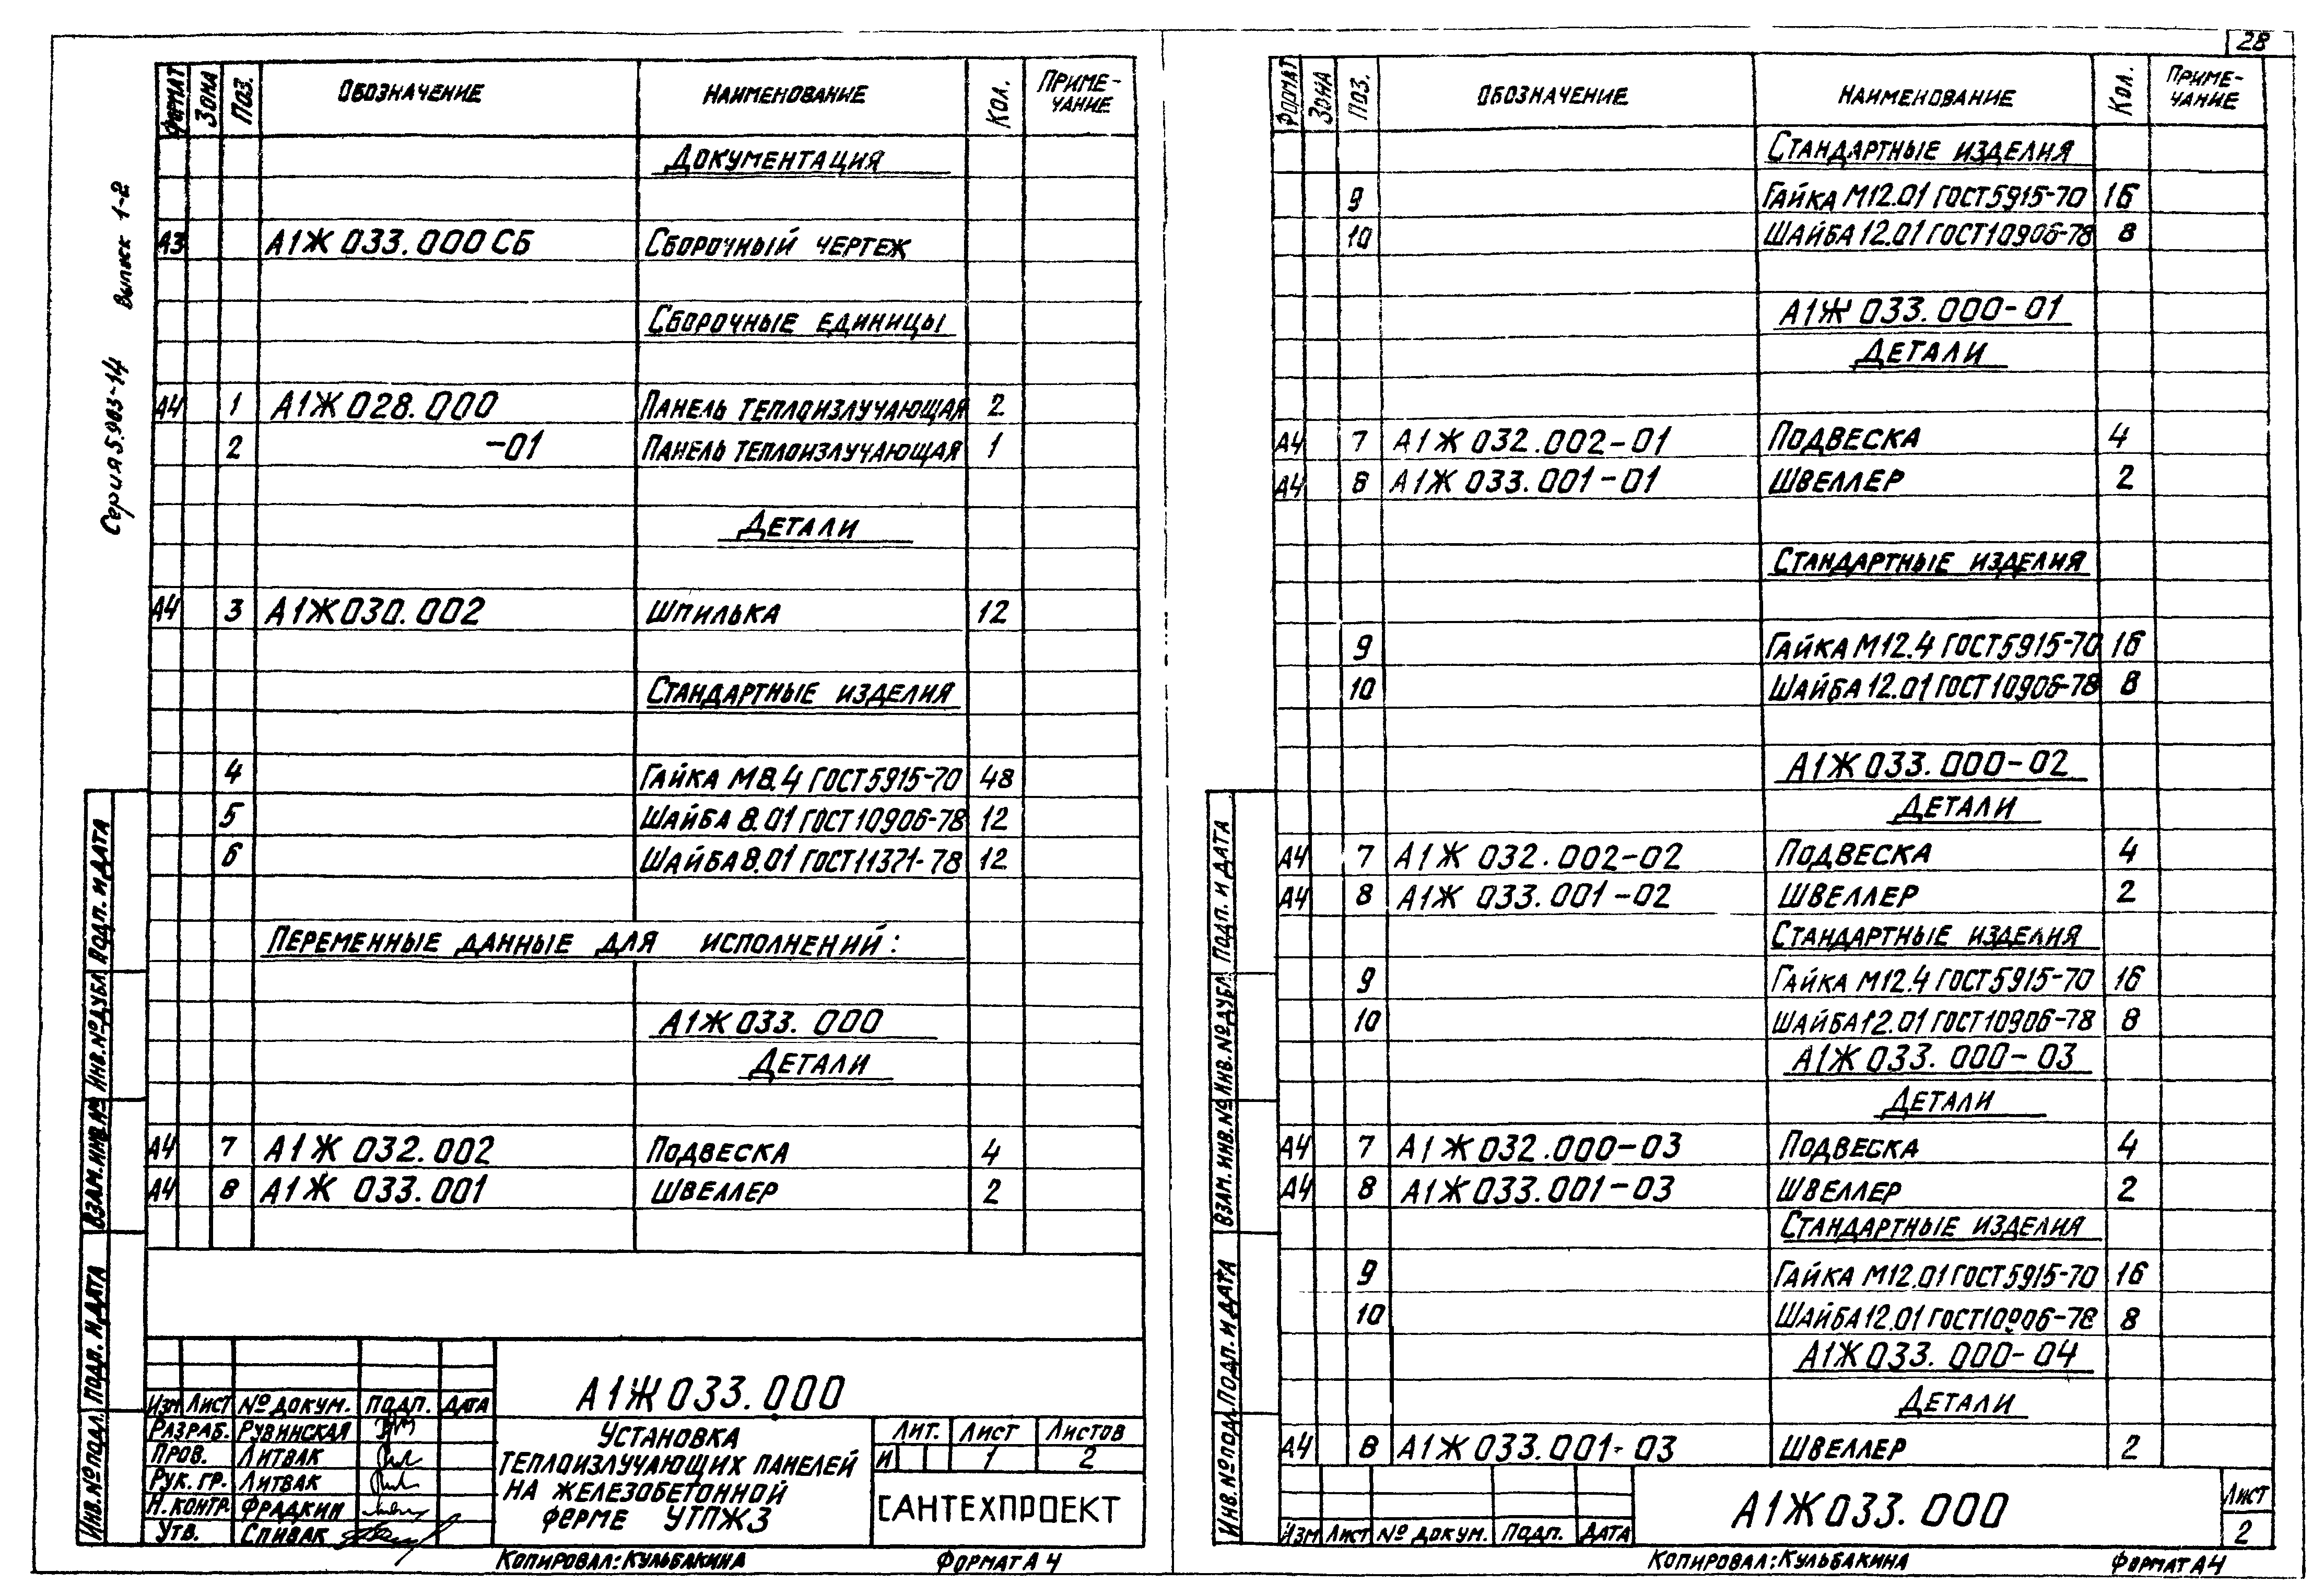 28
Серия 5.903-14 Выпуск 1-2
Формат Зона Поз. Обозначение Наименование Кол. Приме-чание
Документация
А3 А1Ж 033.000 СБ Сборочный чертеж
Сборочные единицы
А4 1 А1Ж 028.000 Панель теплоизлучающая 2
2 -01 Панель теплоизлучающая 1
Детали
А4 3 А1Ж 030.002 Шпилька 12
Стандартные изделия
4 Гайка М8.4 ГОСТ 5915-70 48
5 Шайба 8.01 ГОСТ 10906-78 12
6 Шайба 8.01 ГОСТ 11371-78 12
Переменные данные для исполнений:
А1Ж 033.000
Детали
А4 7 А1Ж 032.002 Подвеска 4
А4 8 А1Ж 033.001 Швеллер 2
Инв.№ подл. Подп. и дата Взам.инв.№ Инв.№ дубл. Подп. и дата
Изм Лист № докум. Подп. Дата
Разраб. Рувинская
Пров. Литвак
Рук. гр. Литвак
Н.контр. Фрадкин
Утв. Спивак
А1Ж 033.000
Установка
теплоизлучающих панелей
на железобетонной
ферме УТПЖ3
Лит. Лист Листов
И 1 2
САНТЕХПРОЕКТ
Копировал: Кульбакина Формат А4
Формат Зона Поз. Обозначение Наименование Кол. Приме-чание
Стандартные изделия
9 Гайка М12.01 ГОСТ 5915-70 16
10 Шайба 12.01 ГОСТ 10906-78 8
А1Ж 033.000-01
Детали
А4 7 А1Ж 032.002-01 Подвеска 4
А4 8 А1Ж 033.001-01 Швеллер 2
Стандартные изделия
9 Гайка М12.4 ГОСТ 5915-70 16
10 Шайба 12.01 ГОСТ 10906-78 8
А1Ж 033.000-02
Детали
А4 7 А1Ж 032.002-02 Подвеска 4
А4 8 А1Ж 033.001-02 Швеллер 2
Стандартные изделия
9 Гайка М12.4 ГОСТ 5915-70 16
10 Шайба 12.01 ГОСТ 10906-78 8
А1Ж 033.000-03
Детали
А4 7 А1Ж 032.000-03 Подвеска 4
А4 8 А1Ж 033.001-03 Швеллер 2
Стандартные изделия
9 Гайка М12.01 ГОСТ 5915-70 16
10 Шайба 12.01 ГОСТ 10906-78 8
А1Ж 033.000-04
Детали
А4 8 А1Ж 033.001-03 Швеллер 2
Инв.№ подл. Подп. и дата Взам.инв.№ Инв.№ дубл. Подп. и дата
Изм Лист № докум. Подп. Дата
А1Ж 033.000
Лист
2
Копировал: Кульбакина Формат А4